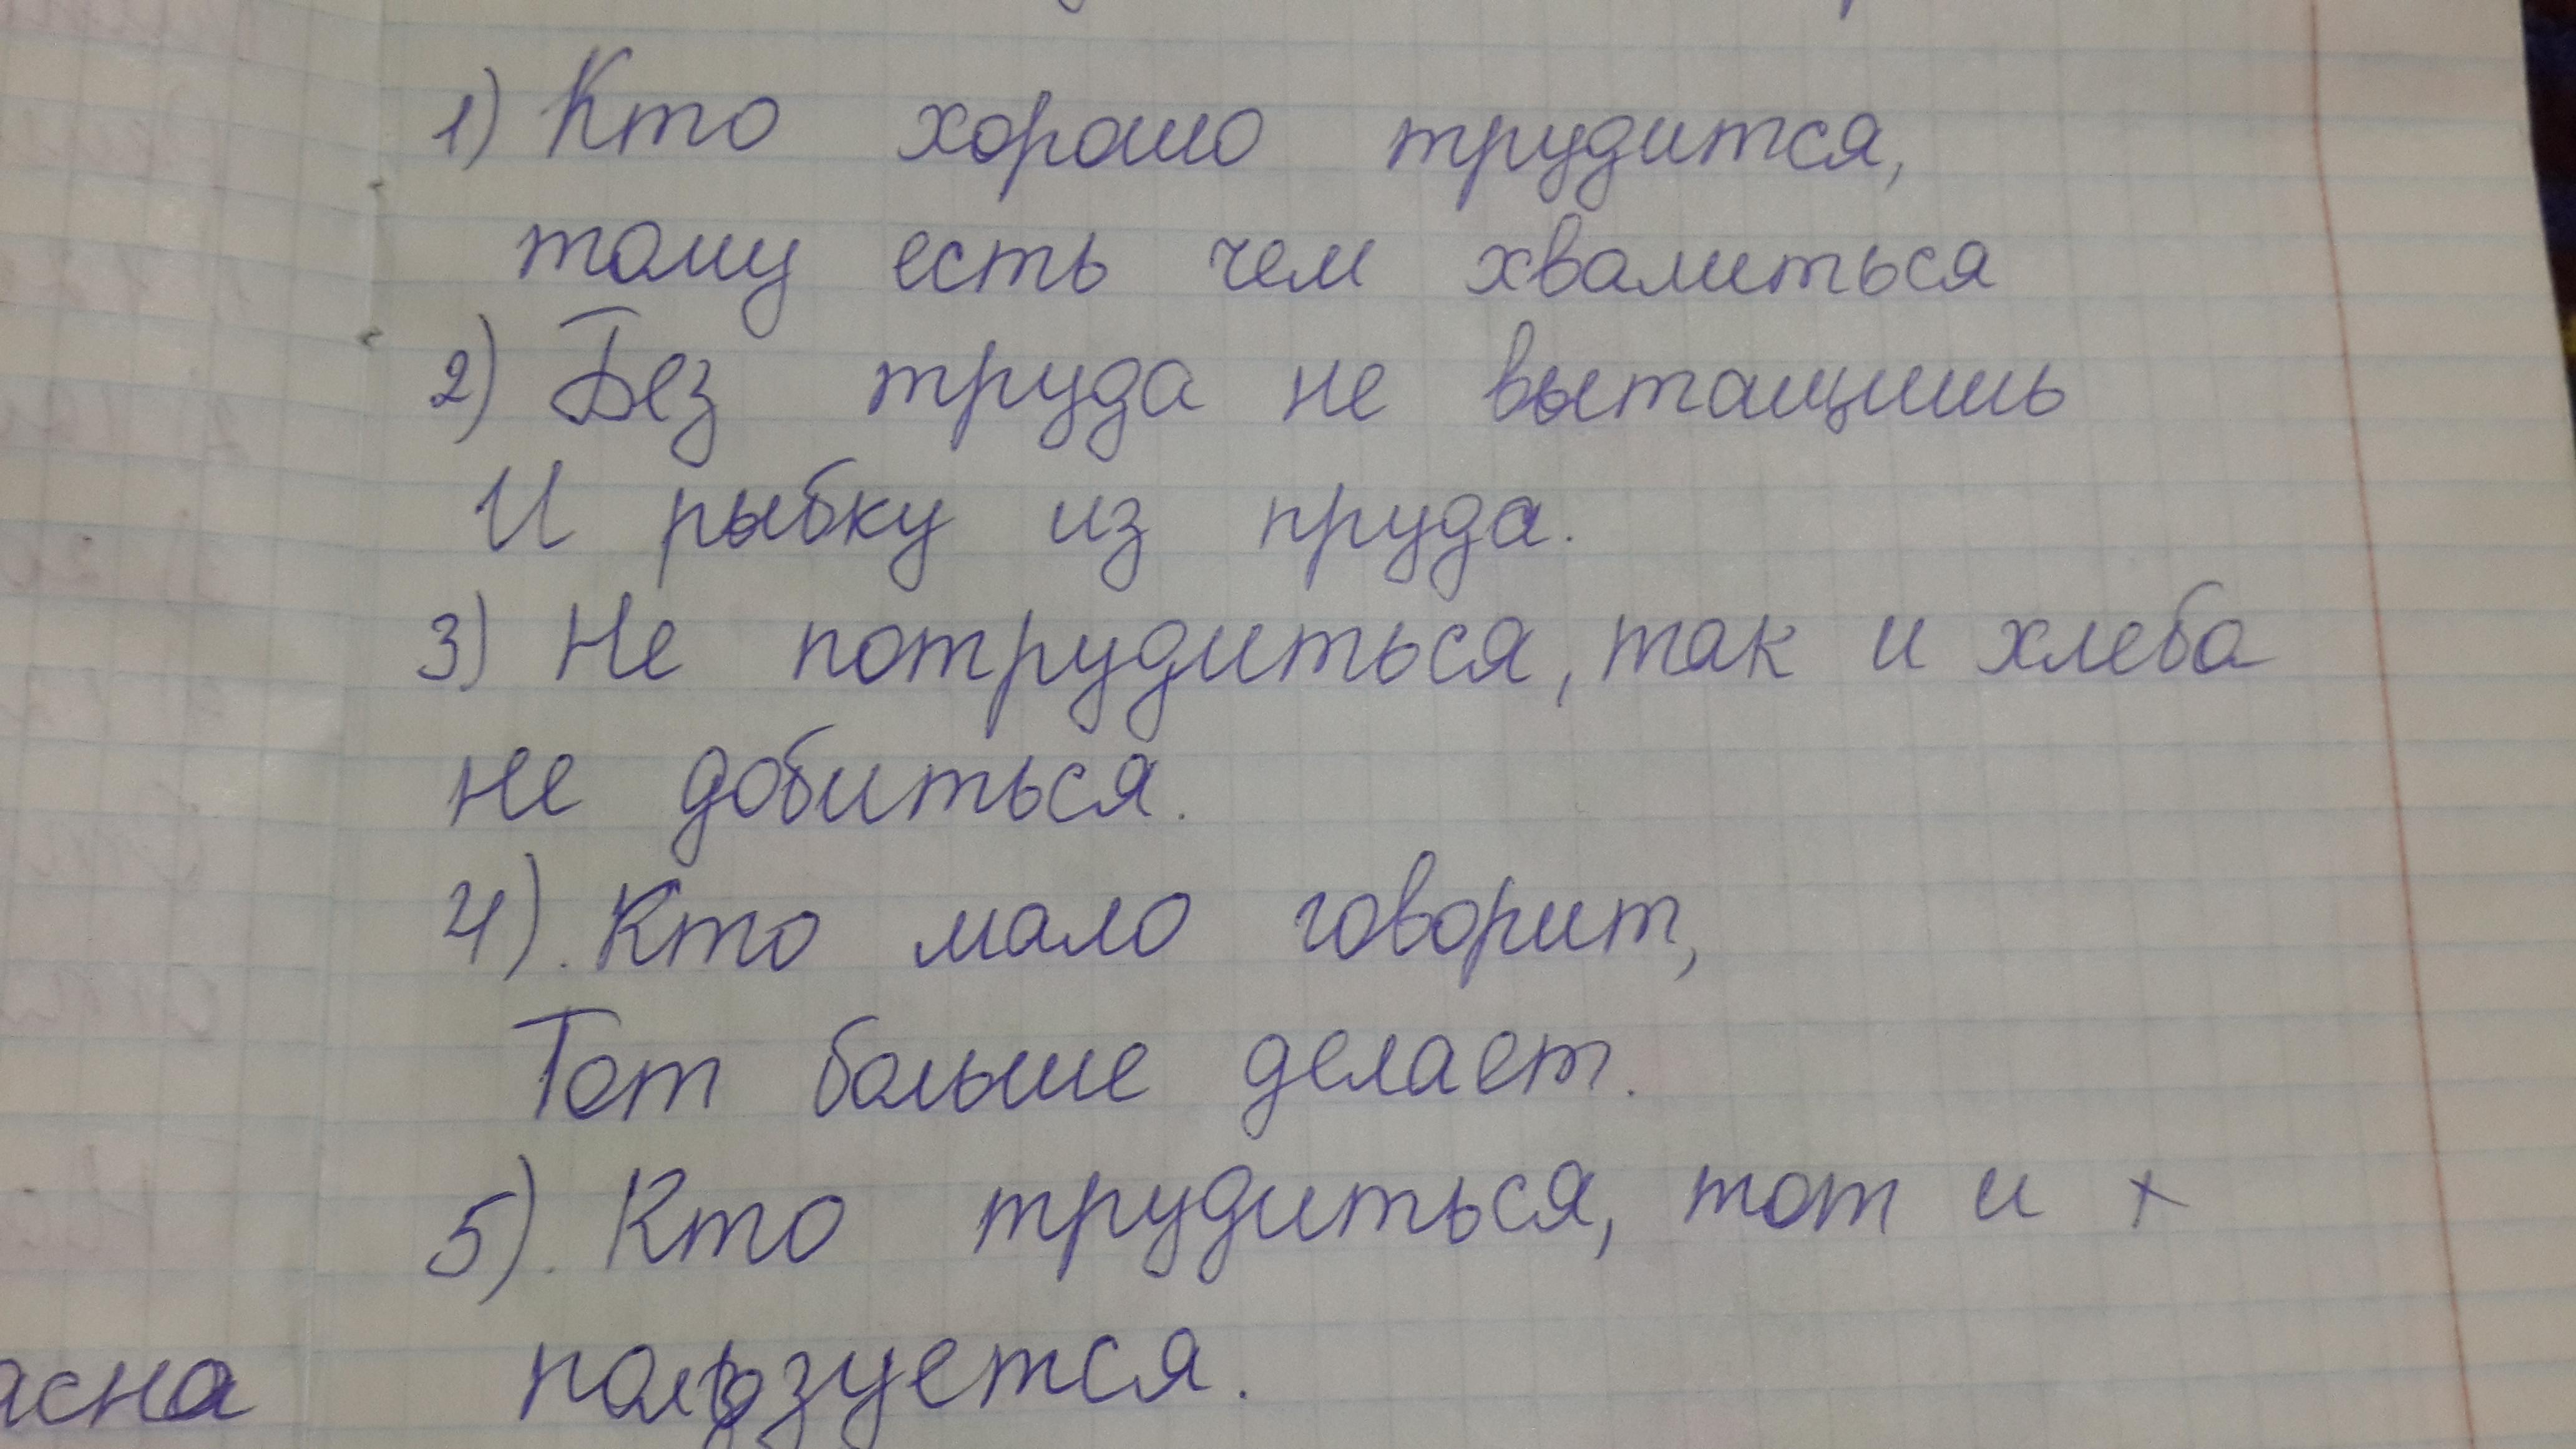 1) Кто хорошо трудится,
тому есть чем хвалиться
2) Без труда не вытащишь
И рыбку из пруда.
3) Не потрудиться, так и хлеба
не добиться.
4). Кто мало говорит,
Тот больше делает.
5). Кто трудиться, тот и х
пользуется.
асна